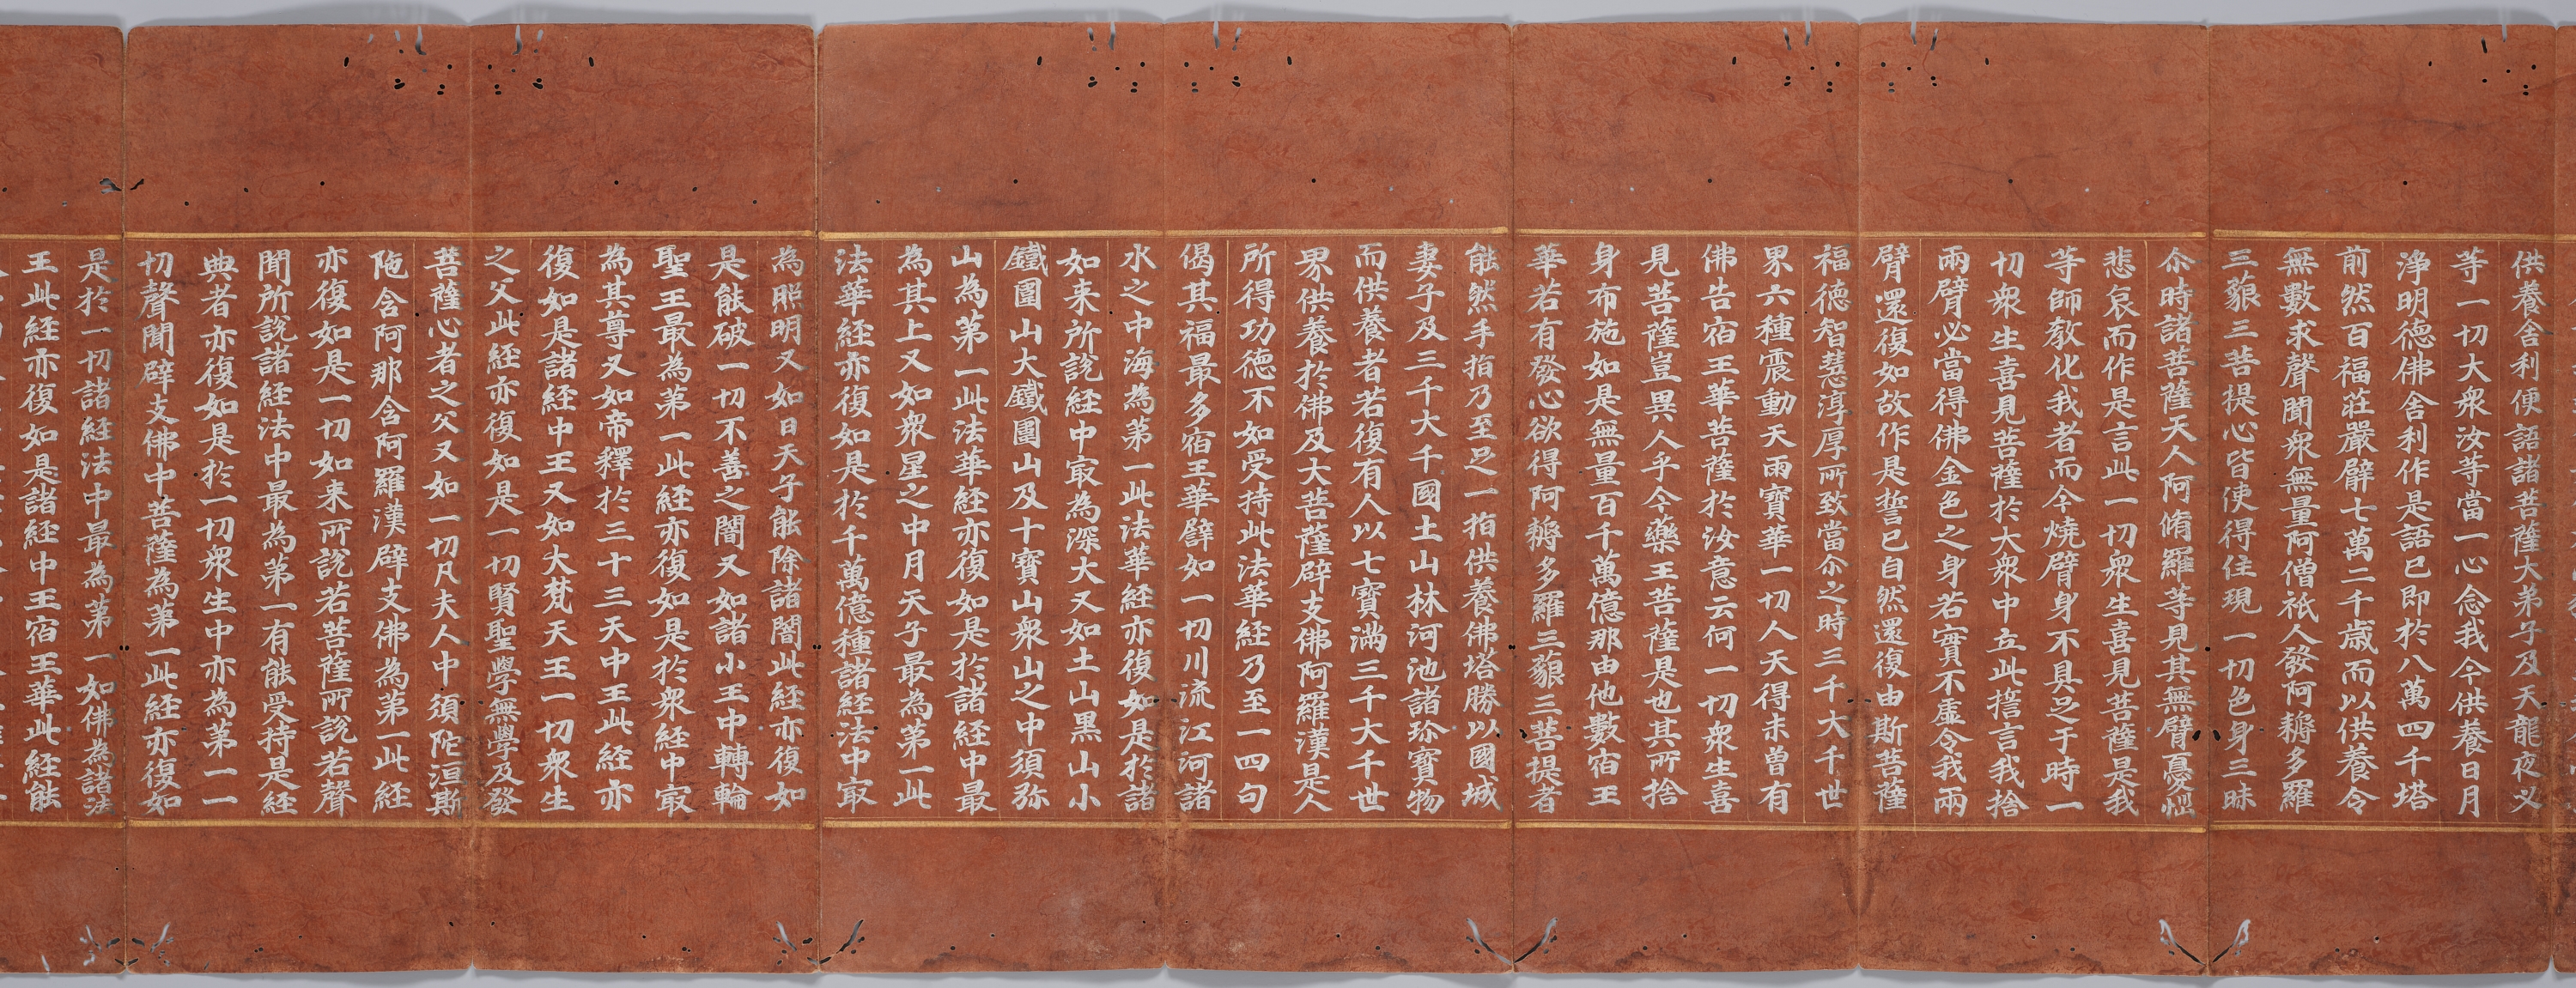 供養舍利便語諸菩薩大弟子及天龍夜叉
等一切大衆汝等當一心念我今供養日月
淨明德佛舍利作是語已即於八萬四千塔
前然百福莊嚴臂七萬二千歲而以供養令
無數求聲聞衆無量阿僧祇人發阿耨多羅
三藐三菩提心皆使得住現一切色身三昧
尒時諸菩薩天人阿脩羅等見其無臂憂惱
悲哀而作是言此一切衆生喜見菩薩是我
等師教化我者而今燒臂身不具足于時一
切衆生喜見菩薩於大衆中立此誓言我捨
兩臂必當得佛金色之身若實不虛令我兩
臂還復如故作是誓已自然還復由斯菩薩
福德智慧淳厚所致當尒之時三千大千世
界六種震動天雨寶華一切人天得未曾有
佛告宿王華菩薩於汝意云何一切衆生喜
見菩薩豈異人乎今藥王菩薩是也其所捨
身布施如是無量百千萬億那由他數宿王
華若有發心欲得阿耨多羅三藐三菩提者
能然手指乃至足一指供養佛塔勝以國城
妻子及三千大千國土山林河池諸珎寶物
而供養者若復有人以七寶滿三千大千世
界供養於佛及大菩薩辟支佛阿羅漢是人
所得功德不如受持此法華経乃至一四句
偈其福最多宿王華譬如一切川流江河諸
水之中海為第一此法華経亦復如是於諸
如来所說経中㝡為深大又如土山黒山小
鐵圍山大鐵圍山及十寶山衆山之中須弥
山為第一此法華経亦復如是於諸経中最
為其上又如衆星之中月天子最為第一此
法華経亦復如是於千萬億種諸経法中㝡
為照明又如日天子能除諸闇此経亦復如
是能破一切不善之闇又如諸小王中轉輪
聖王最為第一此経亦復如是於衆経中㝡
為其尊又如帝釋於三十三天中王此経亦
復如是諸経中王又如大梵天王一切衆生
之父此経亦復如是一切賢聖學無學及發
菩薩心者之父又如一切凡夫人中須陀洹斯
陁含阿那含阿羅漢辟支佛為第一此経
亦復如是一切如来所說若菩薩所說若聲
聞所說諸経法中最為第一有能受持是経
典者亦復如是於一切衆生中亦為第一一
切聲聞辟支佛中菩薩為第一此経亦復如
是於一切諸経法中最為第一如佛為諸法
王此経亦復如是諸経中王宿王華此経能